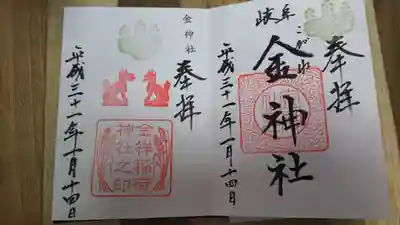 奉拝
岐阜
こがね
金神社
平成三十一年一月十四日
奉拝
金神社
金祥稲荷
神社之印
平成三十一年一月十四日